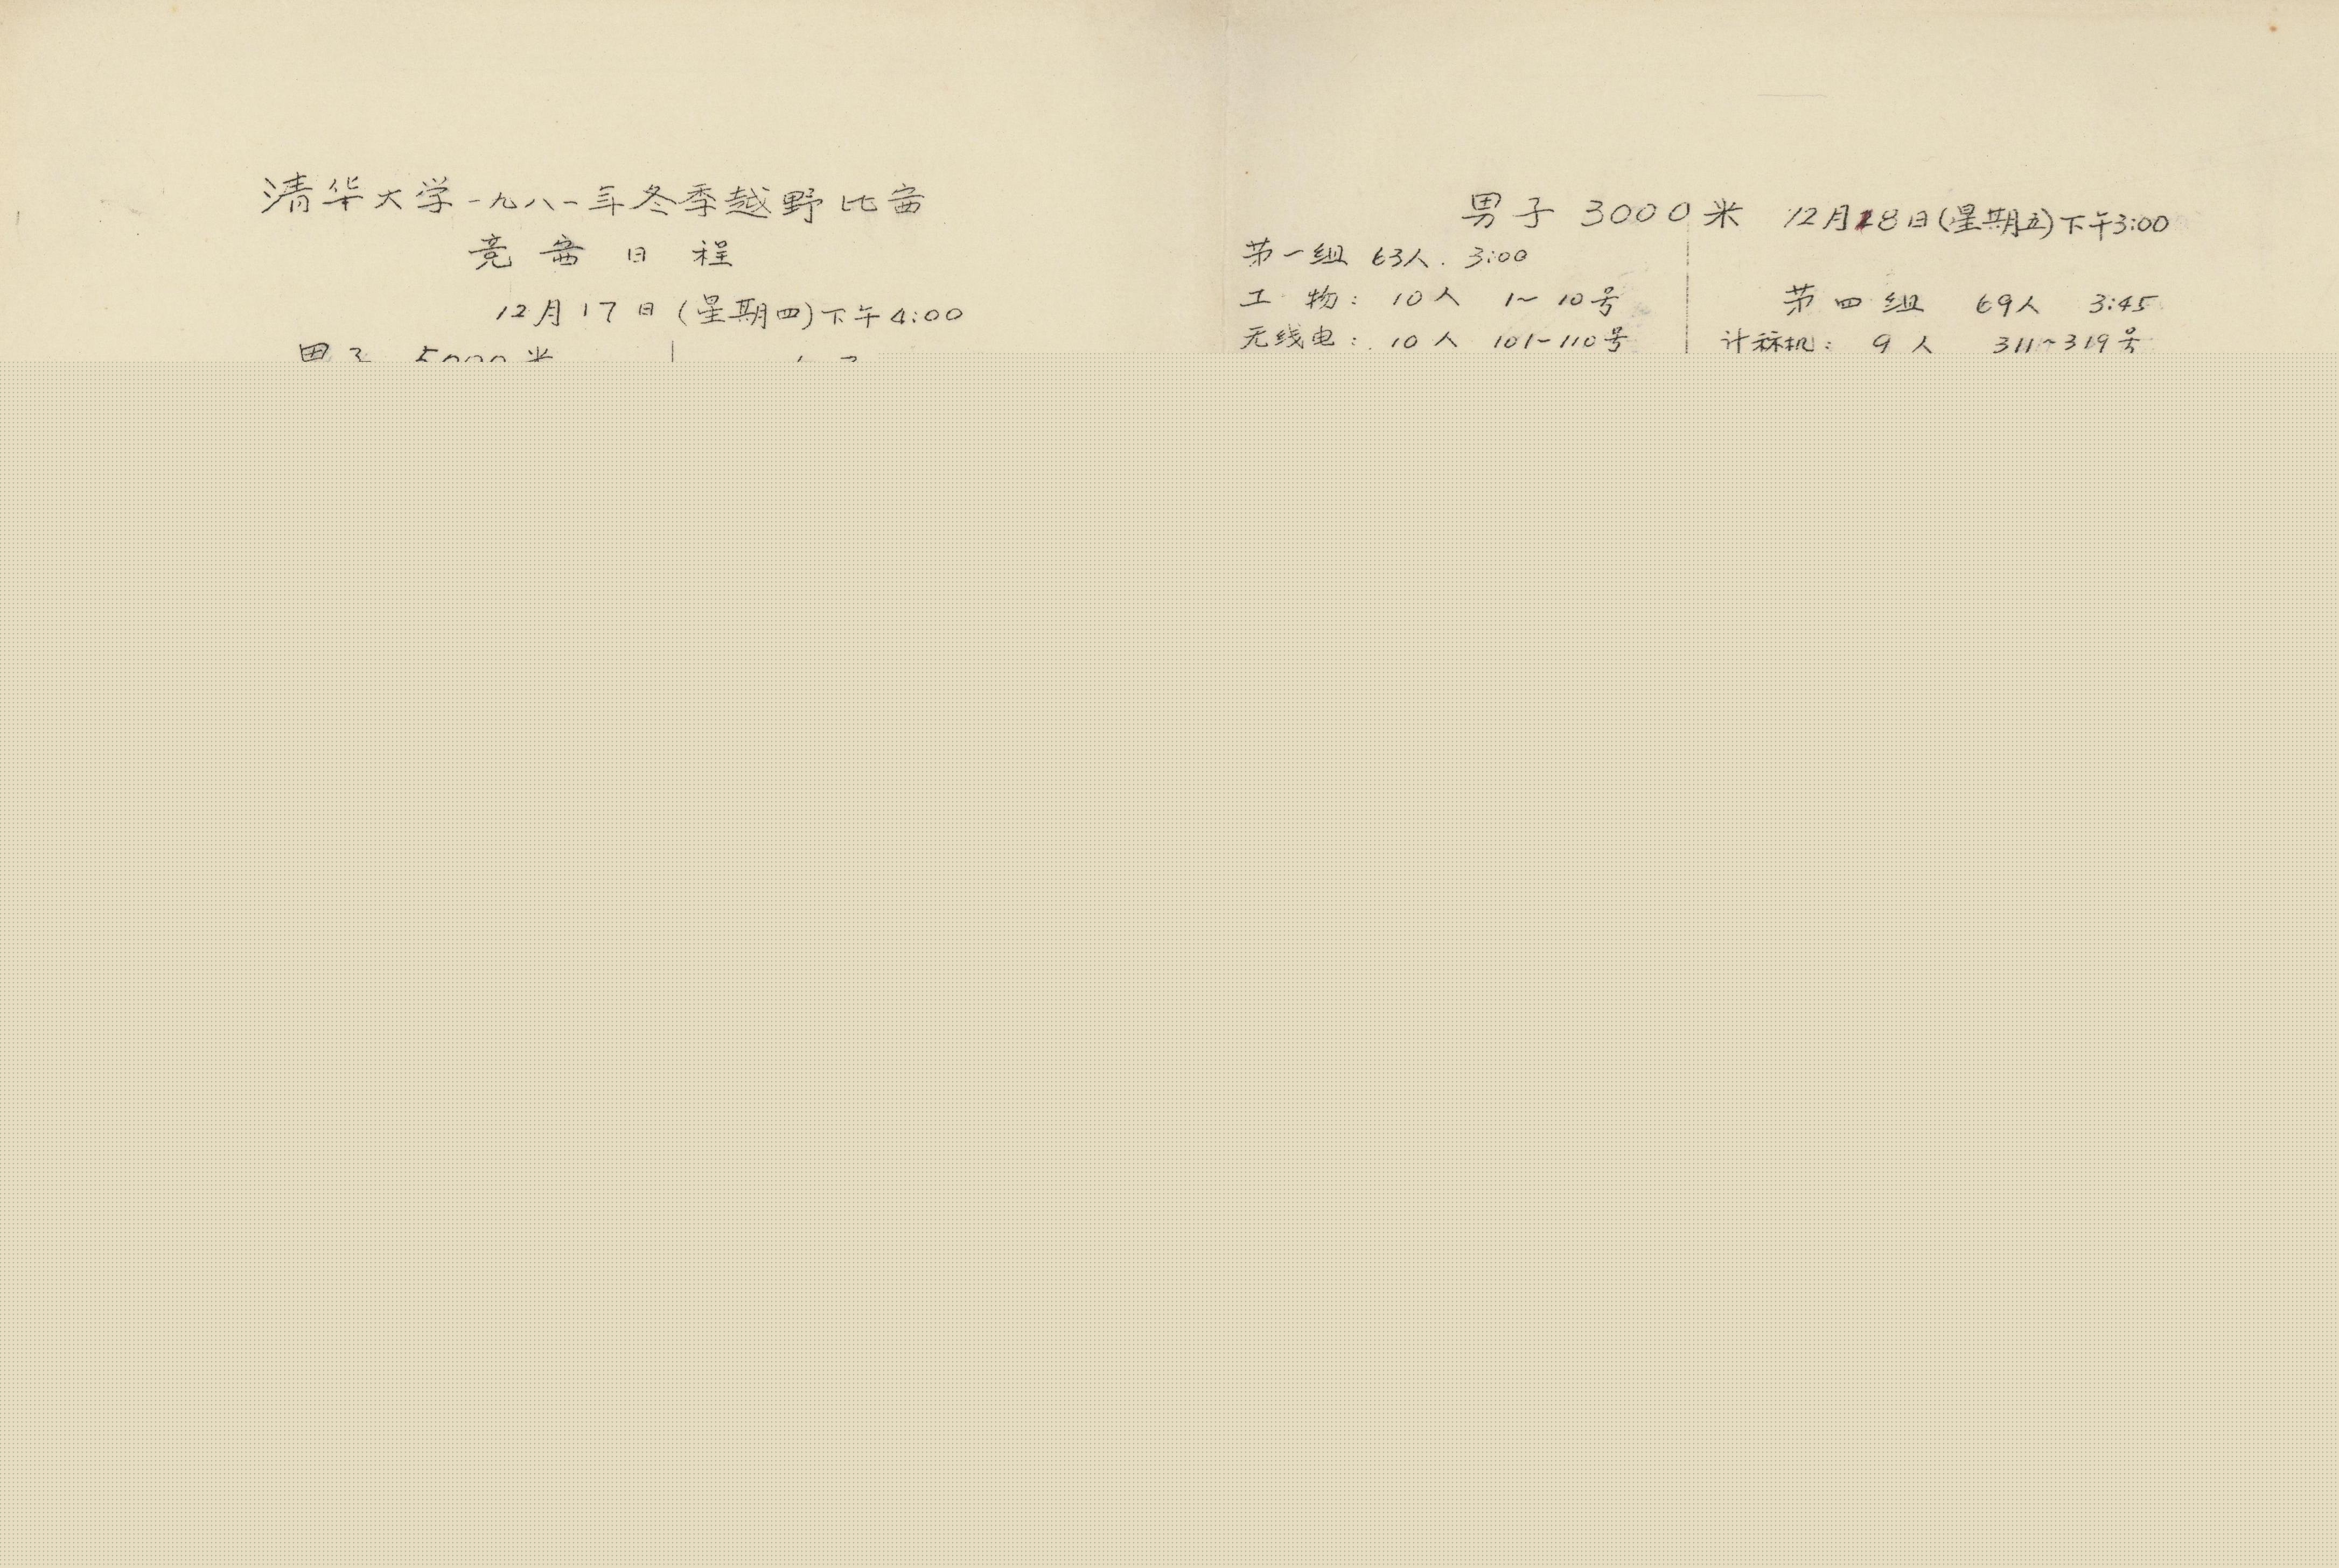 清华大学一九八一年冬季越野比赛
竞赛日程
12月17日(星期四)下午4:00
男子 5000米
男子 3000米 12月18日(星期五)下午3:00
第一组 63人. 3:00
工 物: 10人 1~10号
无线电: 10人 101~110号
第四组 69人 3:45
计标机: 9人 311~319号